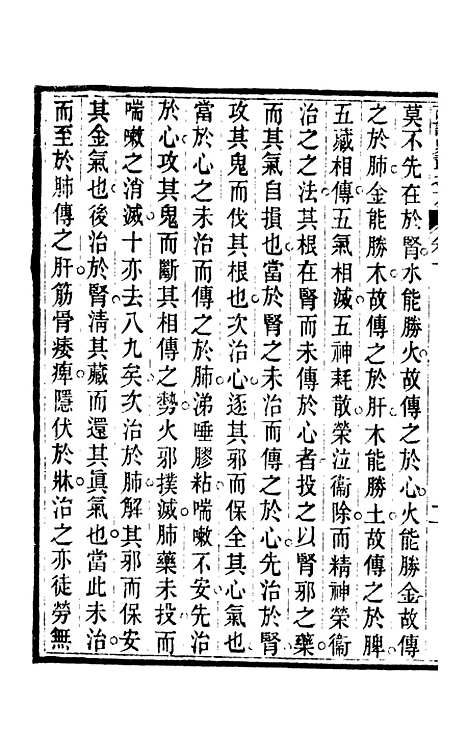 莫不先在於腎水能勝火故傳之於心火能勝金故傳
之於肺金能勝木故傳之於肝木能勝土故傳之於脾
五藏相傳五氣相減五神耗散榮泣衞除而精神榮衞
治之之法其根在腎而未傳於心者投之以腎邪之藥
而其氣自損也當於腎之未治而傳之於心先治於腎
攻其鬼而伐其根也次治心逐其邪而保全其心氣也
當於心之未治而傳之於肺涕唾膠粘喘嗽不安先治
於心攻其鬼而斷其相傳之勢火邪撲滅肺藥未投而
喘嗽之消滅十亦去八九矣次治於肺解其邪而保安
其金氣也後治於腎淸其藏而還其眞氣也當此未治
而至於肺傳之肝筋骨痿痺隱伏於牀治之亦徒勞無